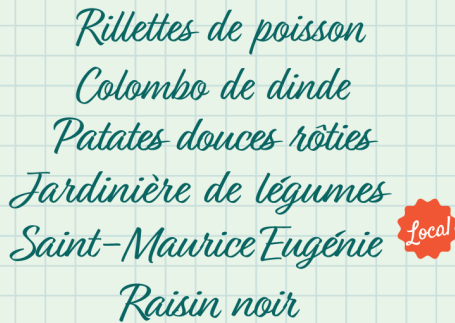 Rillettes de poisson
Colombo de dinde
Patates douces rôties
Jardinière de légumes
Saint-Maurice Eugénie
Local
Raisin noir